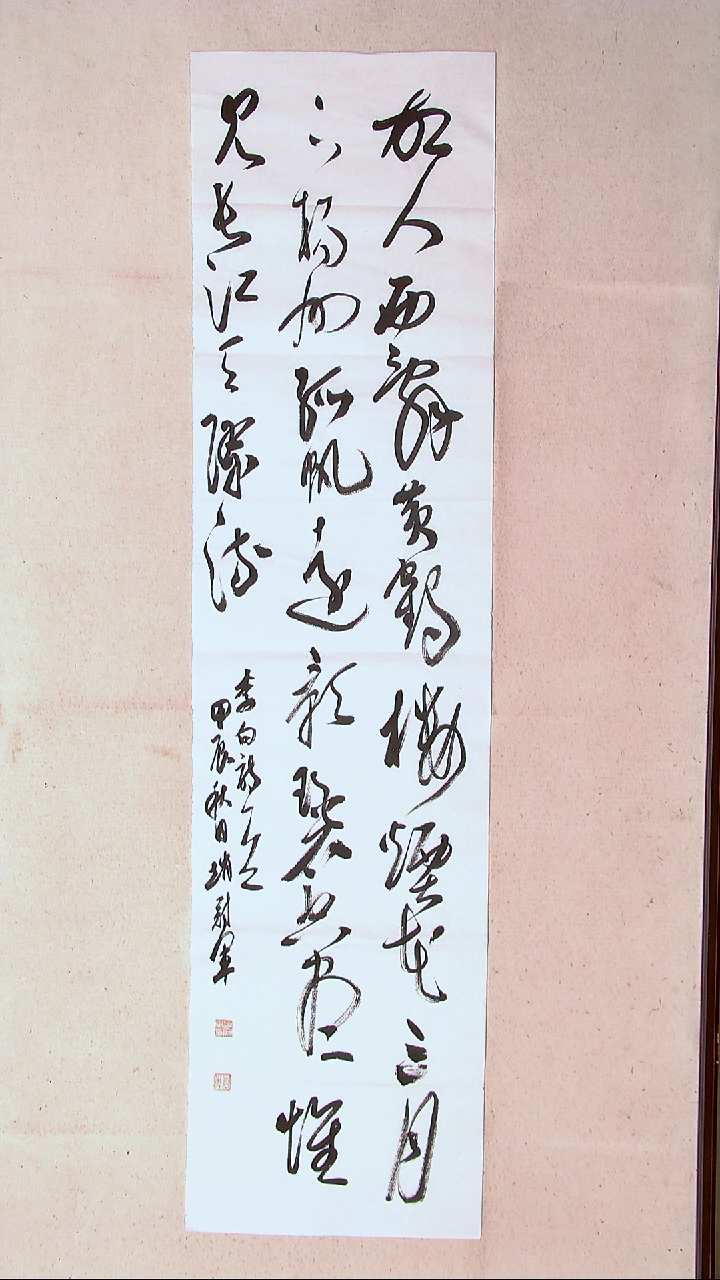 故人西辭黃鶴樓煙花三月
下揚州孤帆遠影碧空盡惟
見長江天際流
李白詩一首
甲辰秋日